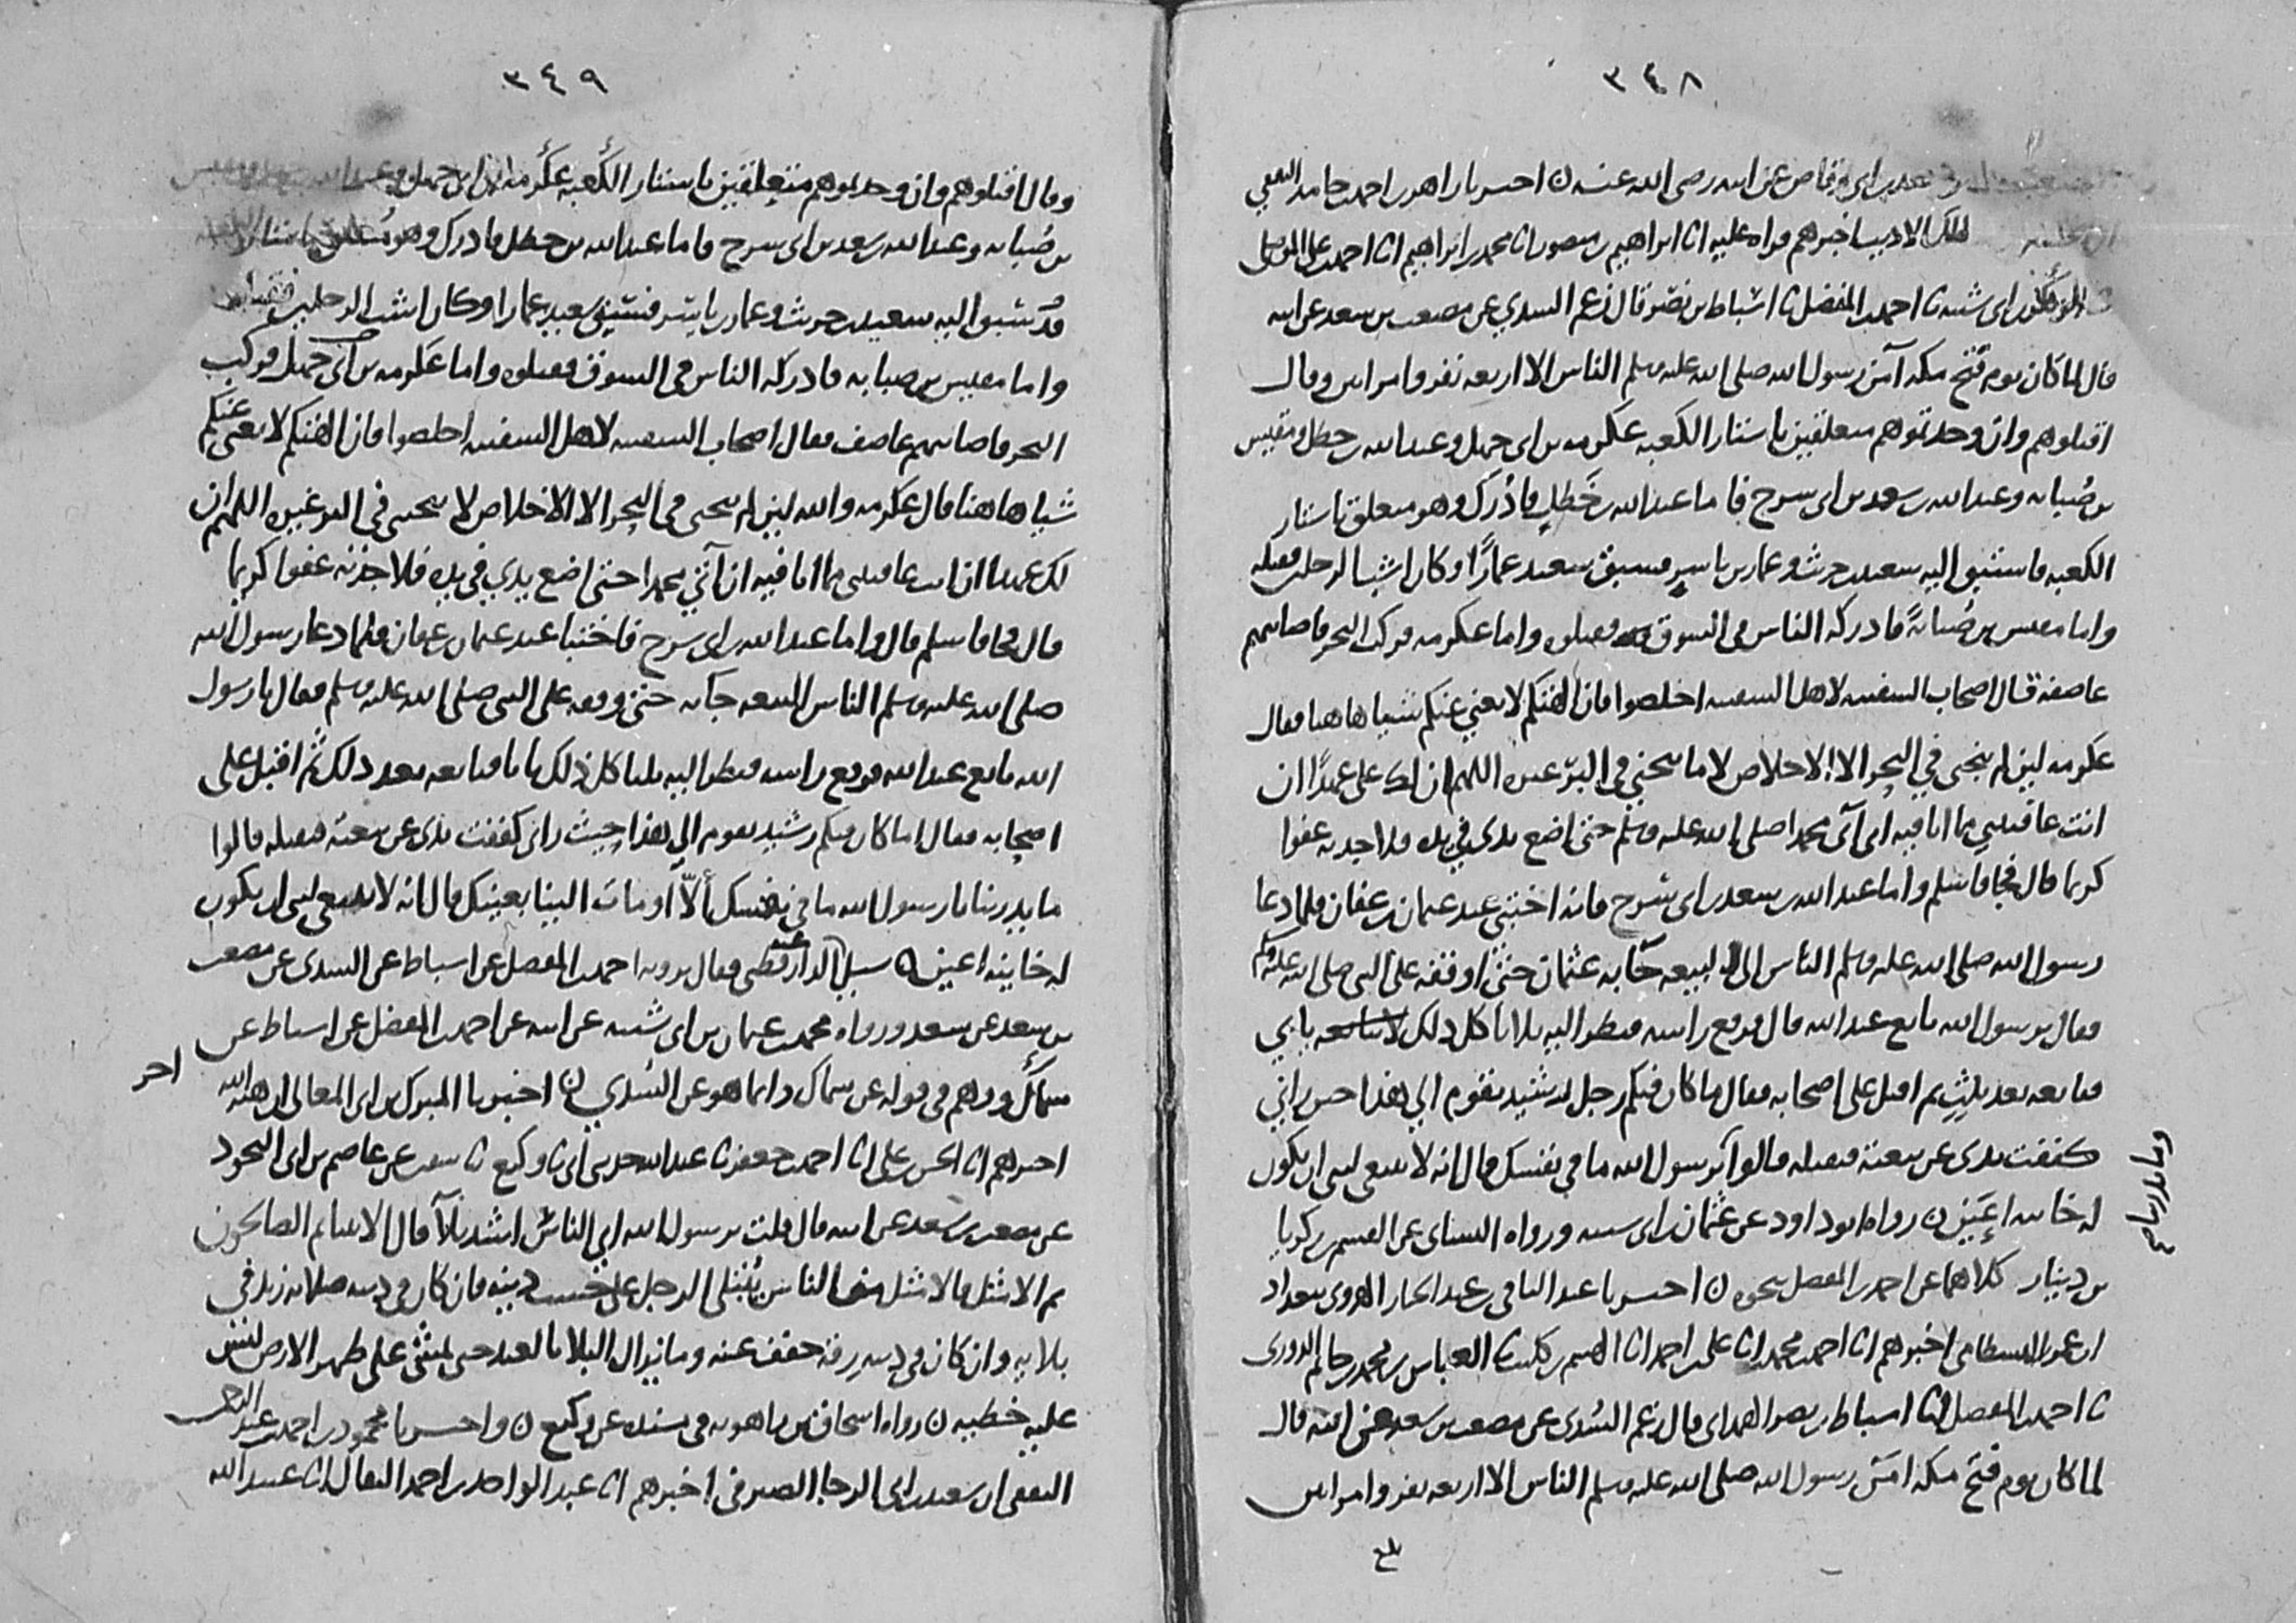 ٣٤٨
سعد بن ابى وقاص عن ابيه رضى الله عنه ن اخبرنا زاهر بن احمد بن حامد الثقفي
الملك الاديب اخبرهم قراه عليه انا ابراهيم بن منصور انا محمد بن ابراهيم انا احمد بن على الموصلى
ابو بكر بن ابى شيبه نا احمد بن المفضل نا اسباط بن نصر قال زعم السدي عن مصعب بن سعد عن ابيه
قال لما كان يوم فتح مكه آمن رسول الله صلى الله عليه وسلم الناس الا اربعه نفر وامراتين وقال
اقتلوهم وان وجدتموهم متعلقين باستار الكعبه عكرمه بن ابى جهل وعبد الله بن خطل ومقيس
بن ضبابه وعبد الله بن سعد بن ابى سرح فاما عبد الله بن خطل فادرك وهو متعلق باستار
الكعبه فاستبق اليه سعيد بن حريث وعمار بن ياسر فسبق سعيد عمارًا وكان اشب الرجلين فقتله
واما مقيس بن ضبابة فادركه الناس فى السوق فقتلوه واما عكرمه فركب البحر فاصابتهم
عاصفة فقال اصحاب السفينه لاهل السفينه اخلصوا فان الهتكم لا تغني عنكم شيا هاهنا فقال
عكرمه لين لم ينجنى في البحر الا الاخلاص لا ما ينجني فى البرّ غيره اللهم ان لك على عهدًا ان
انت عافيتني مما انا فيه انى آتى محمدا صلى الله عليه وسلم حتى اضع يدى في يده فلاجدنه عفوا
كريما قال فجا فاسلم واما عبد الله بن سعد بن ابى سرح فانه اختبى عند عثمان بن عفان فلما دعا
رسول الله صلى الله عليه وسلم الناس الى البيعه جا به عثمان حتى اوقفه على النبى صلى الله عليه وسلم
فقال يرسول الله بايع عبد الله قال فرفع راسه فنظر اليه ثلاثا كل ذلك يابي
فبايعه بعد ثلث ثم اقبل على اصحابه فقال ما كان فيكم رجل رشيد يقوم الي هذا حين رانى
كففت يدى عن بيعته فيقتله قالوا يرسول الله ما في نفسك قال انه لا ينبغى لنبى ان يكون
له خاينه اعين ن رواه ابو داود عن عثمان بن ابى شيبه ورواه النساى عن القسم بن زكريا
بن دينار كلاهما عن احمد بن المفضل بنحوه ن اخبرنا عبد الباقى بن عبد الجبار الهروى ببغداد
ان عمر البسطامى اخبرهم انا احمد بن محمد انا على بن احمد انا الهيثم بن كليب نا العباس بن محمد بن حاتم الدورى
نا احمد بن المفضل نا اسباط بن نصر الهمدانى قال زعم السدى عن مصعب بن سعد عن ابيه قال
لما كان يوم فتح مكه امن رسول الله صلى الله عليه وسلم الناس الا اربعه نفر وامراتين
بلغ
٣٤٩
وقال اقتلوهم وان وجدتموهم متعلقين باستار الكعبه عكرمه بن ابى جهل وعبد الله بن خطل ومقيس
بن ضبابه وعبد الله بن سعد بن ابى سرح فاما عبد الله بن خطل فادرك وهو متعلق باستار الكعبه
فاستبق اليه سعيد بن حريث وعمار بن ياسر فسبق سعيد عمارا وكان اشب الرجلين فقتله
واما مقيس بن ضبابه فادركه الناس فى السوق فقتلوه واما عكرمه بن ابى جهل فركب
البحر فاصابتهم عاصف فقال اصحاب السفينه لاهل السفينه اخلصوا فان الهتكم لا تغنى عنكم
شيا هاهنا فقال عكرمه والله لين لم ينجنى فى البحر الا الاخلاص لا ينجينى فى البر غيره اللهم ان
لك عهدا ان انت عافيتنى مما انا فيه ان آتي محمدا حتى اضع يدي في يده فلاجدنه عفوا كريما
قال فجا فاسلم قال واما عبد الله بن ابى سرح فاختبا عند عثمان بن عفان فلما دعا رسول الله
صلى الله عليه وسلم الناس للبيعه جا به حتى وقفه على النبى صلى الله عليه وسلم فقال يا رسول
الله بايع عبد الله فرفع راسه فنظر اليه ثلثا كل ذلك يابا فبايعه بعد ذلك ثم اقبل على
اصحابه فقال اما كان فيكم رشيد يقوم الي هذا حيث رانى كففت يدى عن بيعته فيقتله قالوا
ما يدرينا يا رسول الله ما في نفسك ألاّ اومات الينا بعينك قال انه لا ينبغى لنبى ان يكون
له خاينه اعين ن سيل عنه الدارقطنى فقال يرويه احمد بن المفضل عن اسباط عن السدى عن مصعب
بن سعد عن سعد ورواه محمد بن عثمان بن ابى شيبه عن ابيه عن احمد بن المفضل عن اسباط عن
سماك ووهم فى قوله عن سماك وانما هو عن السدي ن اخبرنا المبرك بن ابى المعالى ان هبه الله
اخر
اخبرهم انا الحسن بن على انا احمد بن جعفر نا عبد الله حدثنى ابى نا وكيع نا سفين عن عاصم بن ابى النجود
عن مصعب بن سعد عن ابيه قال قلت يرسول الله اي الناس اشد بلاً قال الانبيا ثم الصالحون
ثم الامثل فالامثل من الناس يبتلى الرجل على حسب دينه فان كان فى دينه صلابه زيد في
بلايه وان كان فى دينه رقه خفف عنه وما يزال البلا بالعبد حتى يمشى على ظهر الارض ليس
عليه خطيه ن رواه اسحاق بن راهويه فى مسنده عن وكيع ن واخبرنا محمود بن احمد بن عبد الرحمن
الثقفى ان سعيد بن ابى الرجا الصيرفى اخبرهم انا عبد الواحد بن احمد البقال انا عبيد الله